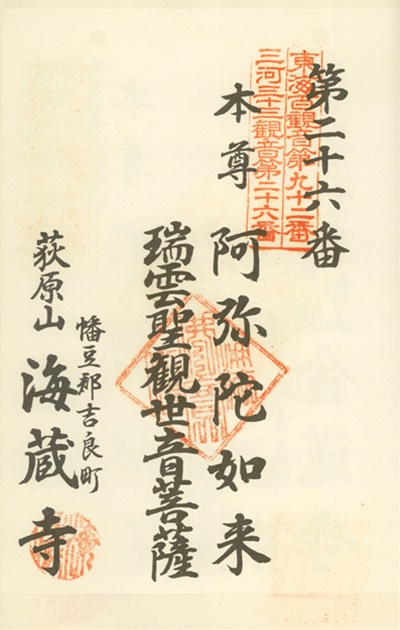 第二十六番
東海百観音第九十二番
三河三十三観音第二十六番
本尊 阿弥陀如来
瑞雲聖観世音菩薩
幡豆郡吉良町
荻原山 海蔵寺